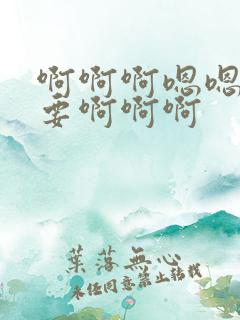 啊啊啊嗯嗯
要啊啊啊
葉落無心
未经同意禁止转载